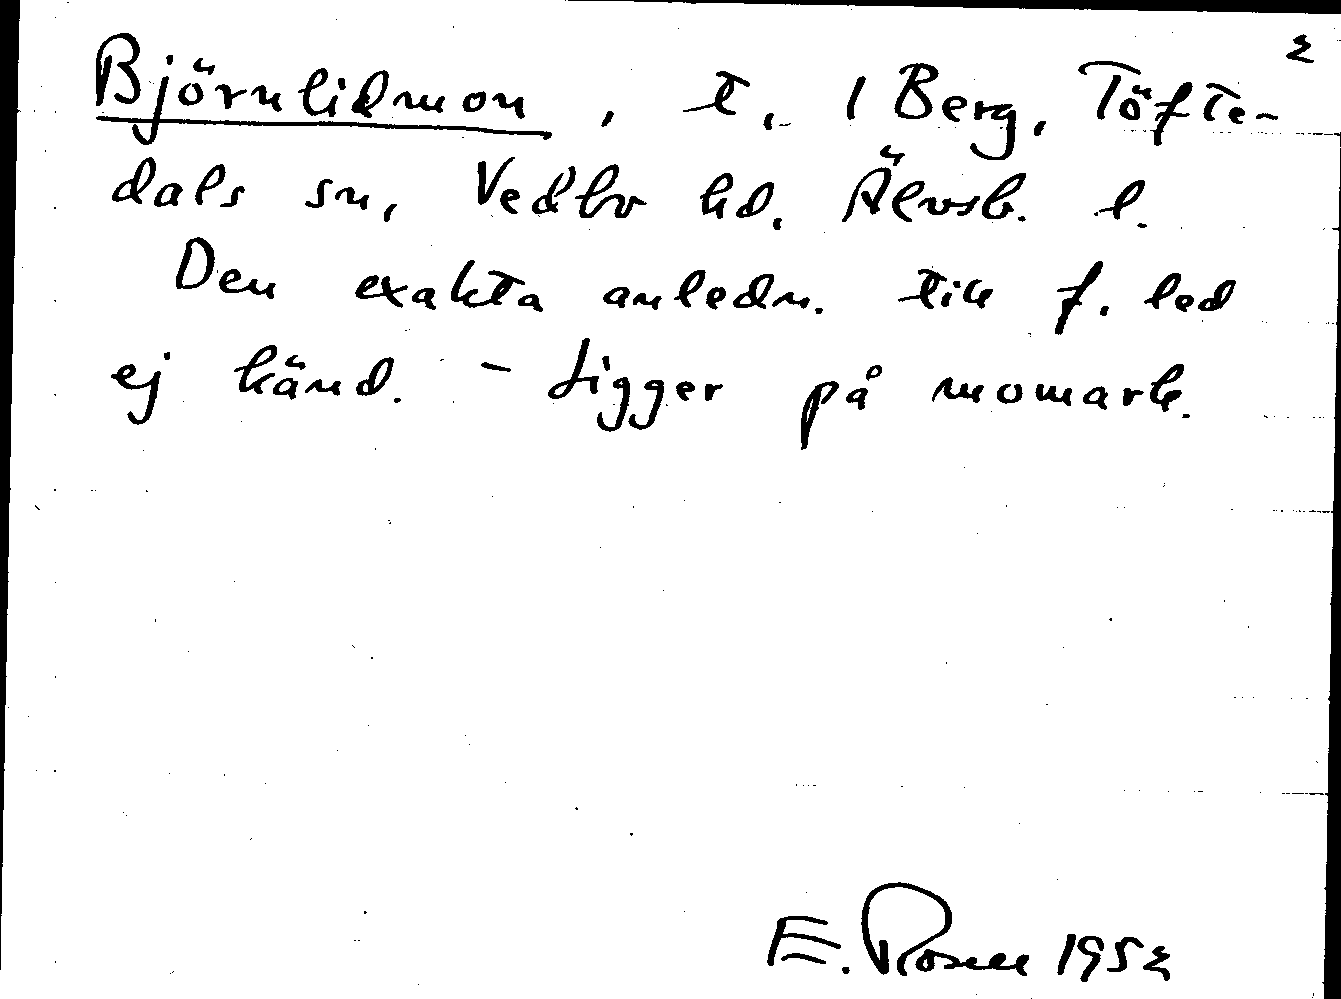 2
Björnlidmon, t. 1 Berg, Töfte-
dals sn, Vedbo hd. Älvsb. l.
Den exakta anledn. till f. led
ej känd. - Ligger på momark.
E. Rosell 1952